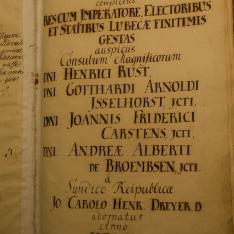 complectens
RESCUM IMPERATORE, ELECTORIBUS
ET STATIBUS LUBECÆ FINITIMIS
GESTAS
auspicus
Consulum Magnificorum
DNI HENRICI RUST,
DNI GOTTHARDI ARNOLDI
ISSELHORST, JCTI.
DNI JOANNIS FRIDERICI
CARSTENS, JCTI,
DNI. ANDREÆ ALBERTI
DE BROEMBSEN, JCTI.
a
Syndico Reipublica
JO CAROLO HENR DREYER D
adornatus
Anno